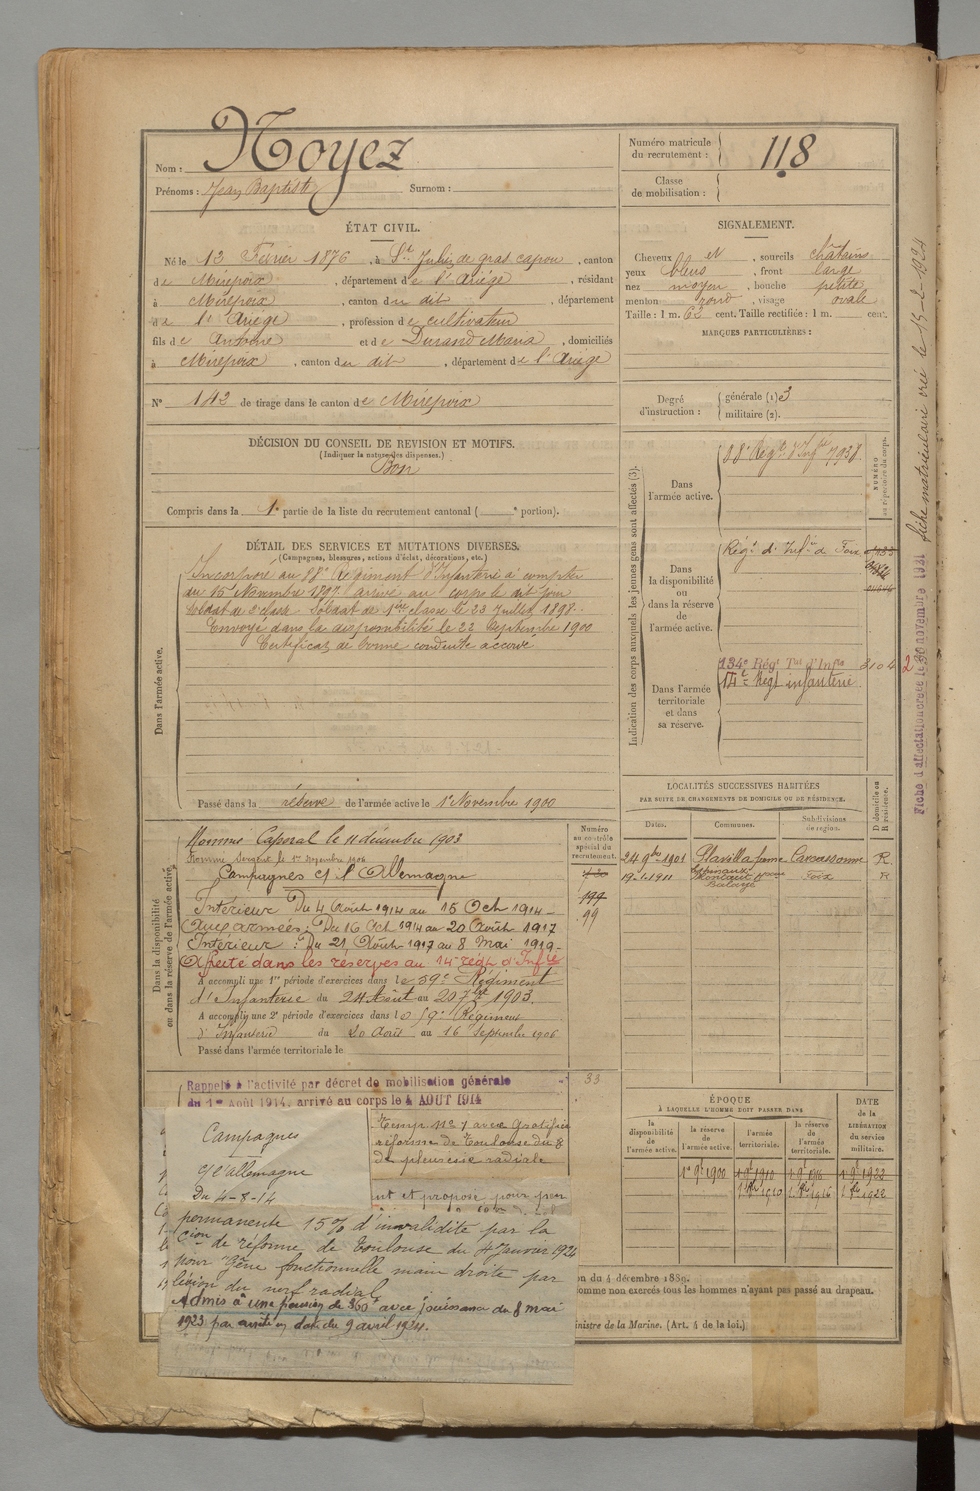 Nom : Noyez
Prénoms : Jean Baptiste Surnom :
Numéro matricule
du recrutement : 118
Classe
de mobilisation :
ÉTAT CIVIL.
Né le 12 Février 1876, à St Julien de gras capou, canton
de Mirepoix, département de l'Ariège, résidant
à Mirepoix, canton du dit, département
de l'Ariège, profession de cultivateur
fils de Antoine et de Durand Maria, domiciliés
à Mirepoix, canton du dit, département de l'Ariège
N° 142 de tirage dans le canton de Mirepoix
SIGNALEMENT.
Cheveux et, sourcils châtains
yeux bleus, front large
nez moyen, bouche petite
menton rond, visage ovale
Taille : 1 m. 62 cent. Taille rectifiée : 1 m. cent.
MARQUES PARTICULIÈRES :
Degré
d'instruction :
générale (1) 3
militaire (2).
DÉCISION DU CONSEIL DE REVISION ET MOTIFS.
(Indiquer la nature des dispenses.)
Bon
Compris dans la 1e partie de la liste du recrutement cantonal ( e portion).
DÉTAIL DES SERVICES ET MUTATIONS DIVERSES.
(Campagnes, blessures, actions d'éclat, décorations, etc.)
Dans l'armée active.
Incorporé au 88e Régiment d'Infanterie à compter
du 15 Novembre 1897 arrivé au corps le dit jour
soldat de 2e classe Soldat de 1ère classe le 23 Juillet 1898.
Envoyé dans la disponibilité le 22 Septembre 1900
Certificat de bonne conduite accordé
Passé dans la réserve de l'armée active le 1er Novembre 1900
Indication des corps auxquels les jeunes gens sont affectés (3).
NUMÉRO
au répertoire du corps.
Dans
l'armée active.
88e Régt d'Infie 7938
Dans
la disponibilité
ou
dans la réserve
de
l'armée active.
Régt d'Infie de Foix
Dans l'armée
territoriale
et dans
sa réserve.
134e Régt Tal d'Infie 3104
14e Régt infanterie
Dans la disponibilité
ou dans la réserve de l'armée active.
Nommé Caporal le 11 décembre 1903
Nommé Sergent le 1er Septembre 1906
Campagnes c/ l'Allemagne
Intérieur Du 4 Août 1914 au 15 Oct 1914
Aux armées : Du 16 Oct 1914 au 20 Août 1917
Intérieur : Du 21 Août 1917 au 8 Mai 1919
Affecté dans les réserves au 14e régt d'Infie
A accompli une 1re période d'exercices dans le 59e Régiment
d'Infanterie du 24 Août au 20 7bre 1903.
A accompli une 2e période d'exercices dans le 59e Régiment
d'Infanterie du 20 Août au 16 Septembre 1906
Passé dans l'armée territoriale le
Numéro
au contrôle
spécial du
recrutement.
199
99
33
LOCALITÉS SUCCESSIVES HABITÉES
PAR SUITE DE CHANGEMENTS DE DOMICILE OU DE RÉSIDENCE.
Dates. Communes. Subdivisions
de région. D domicile ou
R résidence.
24 9bre 1901 Plavilla ferme Carcassonne R
19-1-1911 Montaut Foix R
Rappelé à l'activité par décret de mobilisation générale
du 1er Août 1914, arrivé au corps le 4 AOUT 1914
Campagnes
C/ l'Allemagne
Du 4-8-14
Temp n° 1 avec gratifica
réforme de Toulouse du 8
de pleurésie radiale
nt et proposé pour pen
permanente 15% d'invalidité par la
Cion de réforme de Toulouse du 4 Janvier 1924
pour gêne fonctionnelle main droite par
lésion du nerf radial
Admis à une pension de 360 f avec jouissance du 8 mai
1923 par arrêté en date du 9 avril 1924.
ÉPOQUE
À LAQUELLE L'HOMME DOIT PASSER DANS
la
disponibilité
de
l'armée active.
la
réserve
de
l'armée active.
l'armée
territoriale.
la
réserve
de
l'armée
territoriale.
DATE
de la
LIBÉRATION
du service
militaire.
1er 9bre 1900 1er 9bre 1910 1er 9bre 1916 1er 9bre 1922
1er 8bre 1910 1er 8bre 1916 1er 8bre 1922
n du 4 décembre 1889.
omme non exercés tous les hommes n'ayant pas passé au drapeau.
inistre de la Marine. (Art. 4 de la loi.)
Fiche d'affectation créée le 30 novembre 1931
fiche matriculaire créée le 15-2-1924